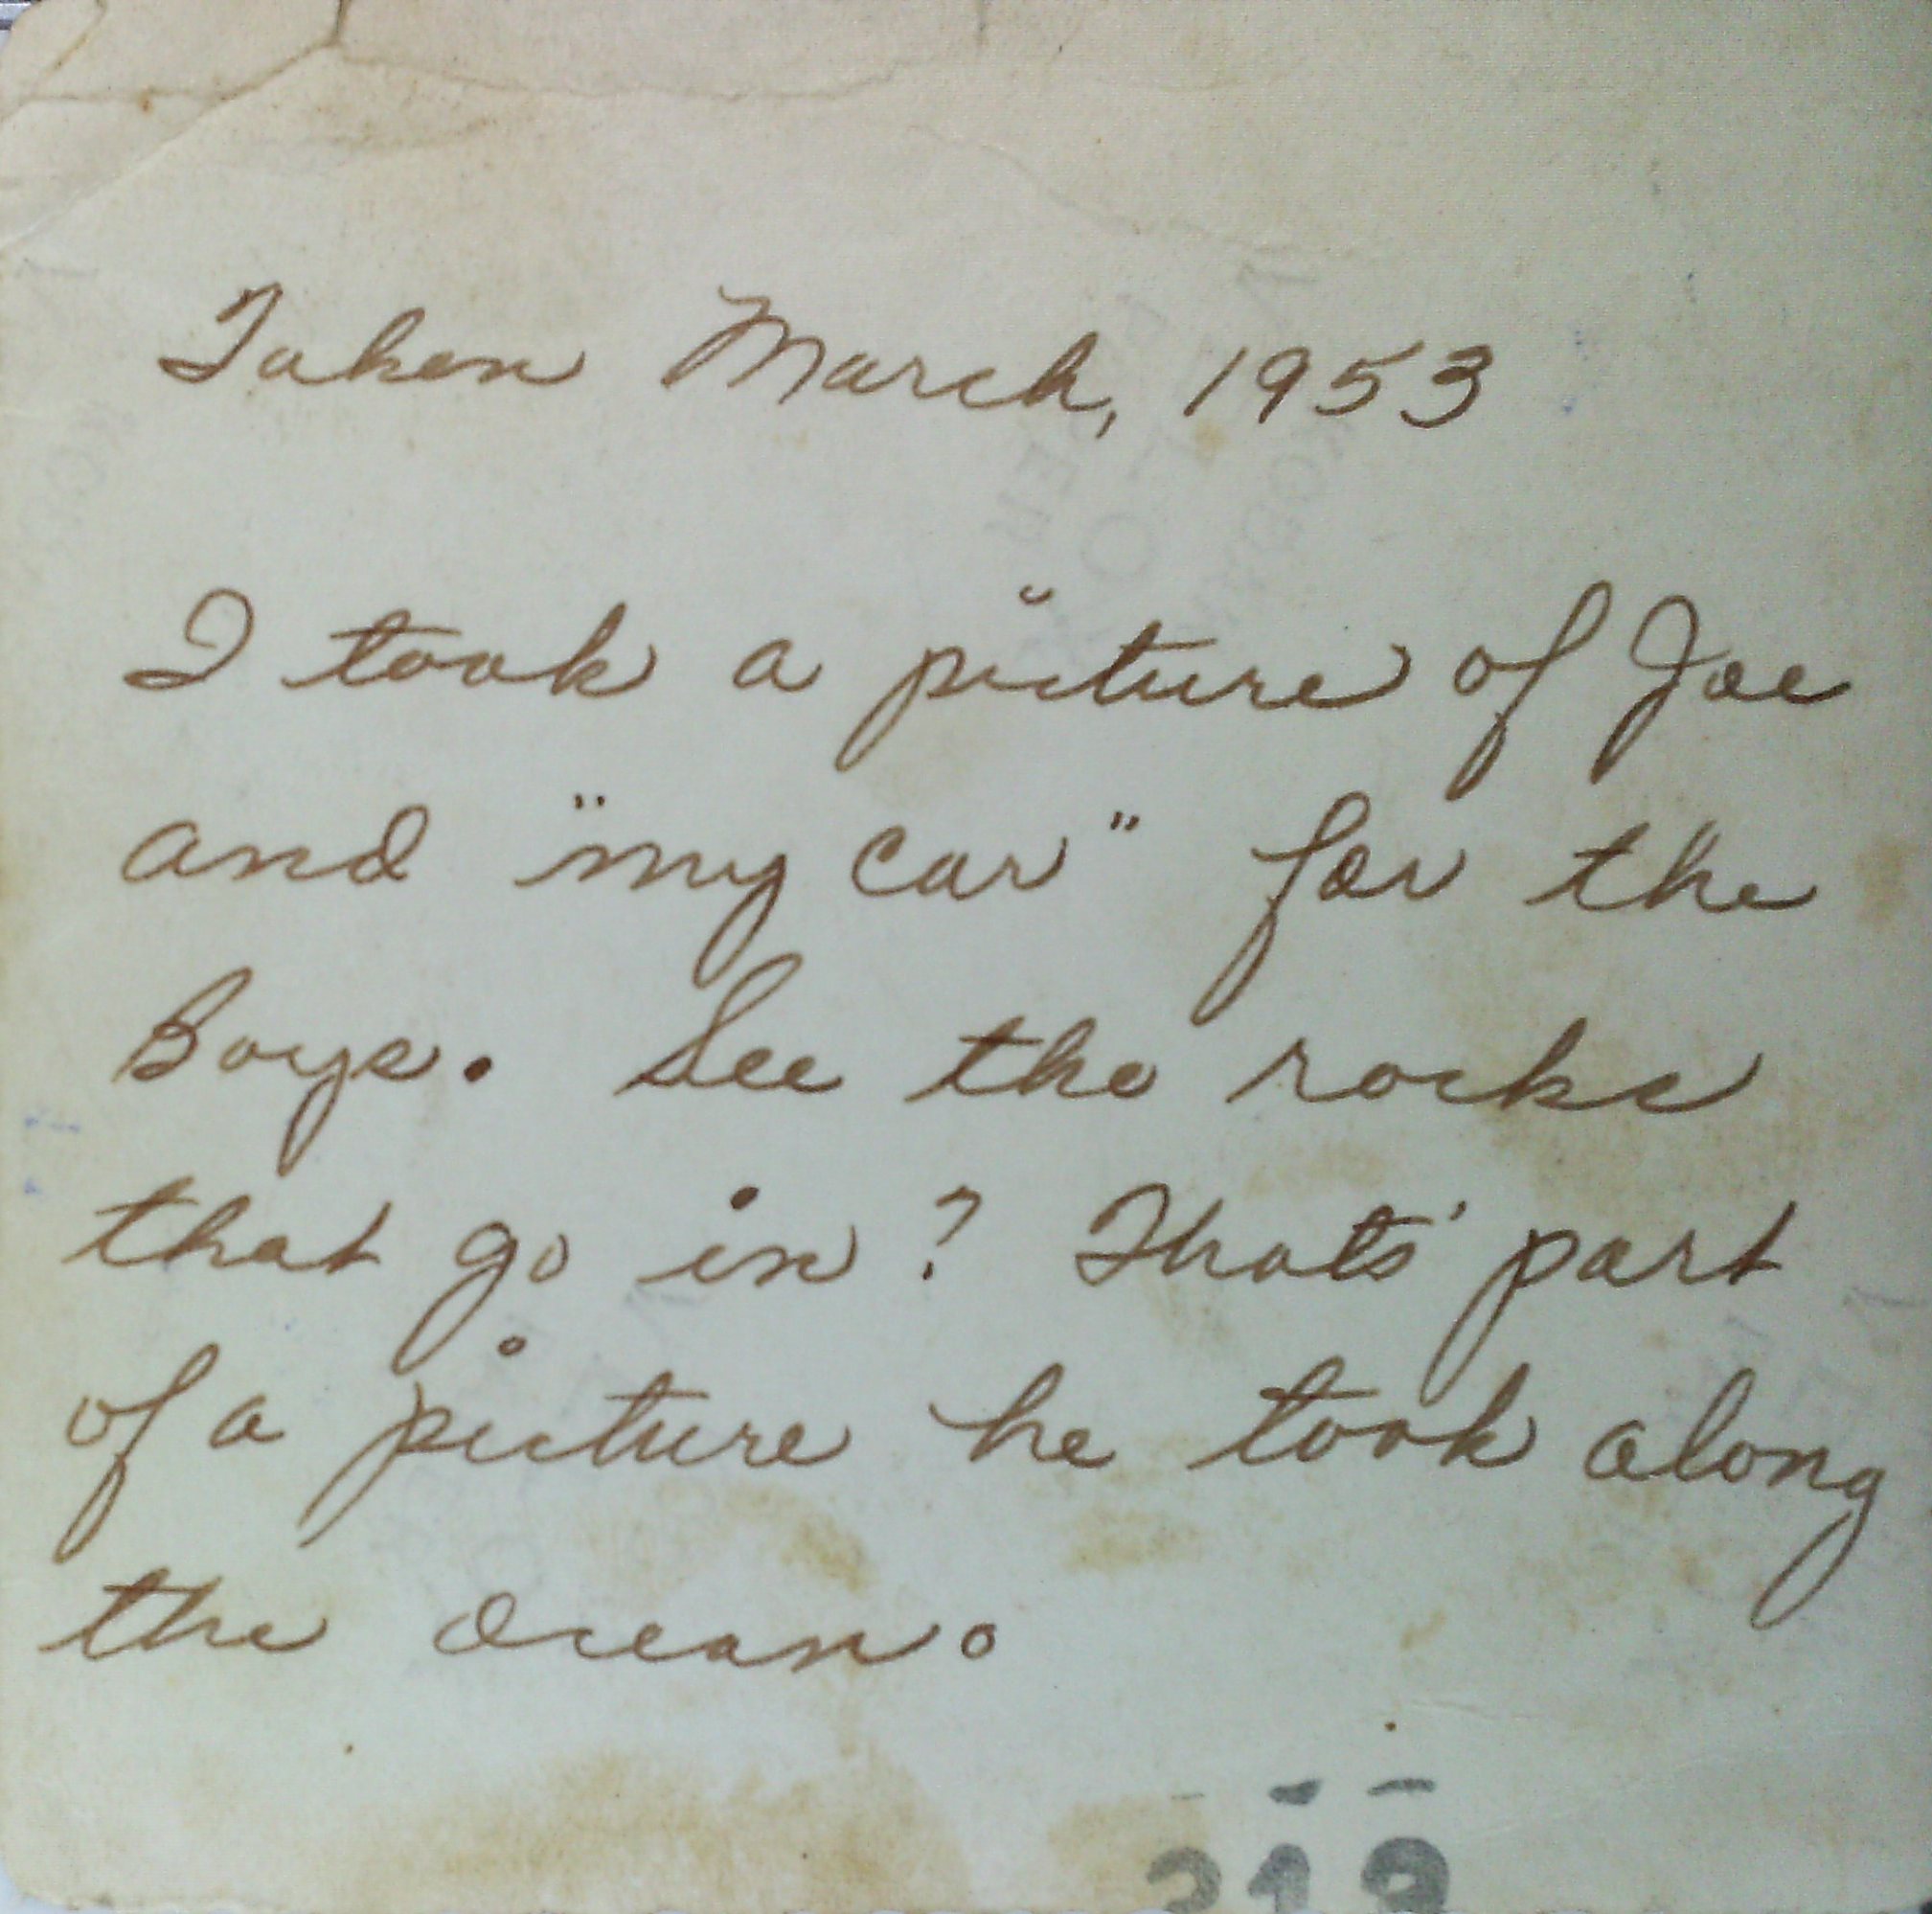 Taken March, 1953
I took a picture of Joe
and "my car" for the
Boys. See the rocks
that go in? Thats' part
of a picture he took along
the Ocean.